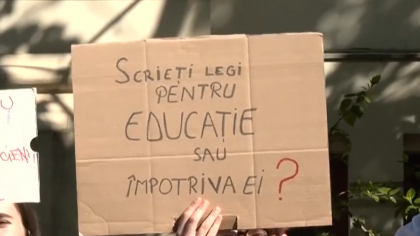 SCRIEȚI LEGI
PENTRU
EDUCAȚIE
SAU
ÎMPOTRIVA EI ?